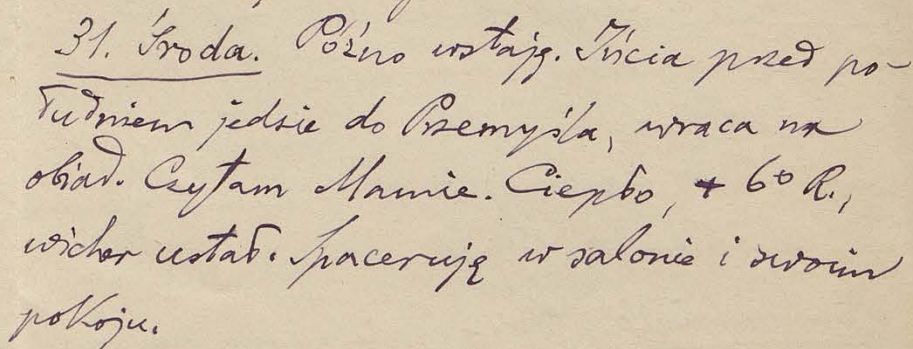 31. Środa. Późno wstaję. Kicia przed po-
łudniem jedzie do Przemyśla, wraca na
obiad. Czytam Mamie. Ciepło, + 6° R.,
wicher ustał. Spaceruję w salonie i swoim
pokoju.